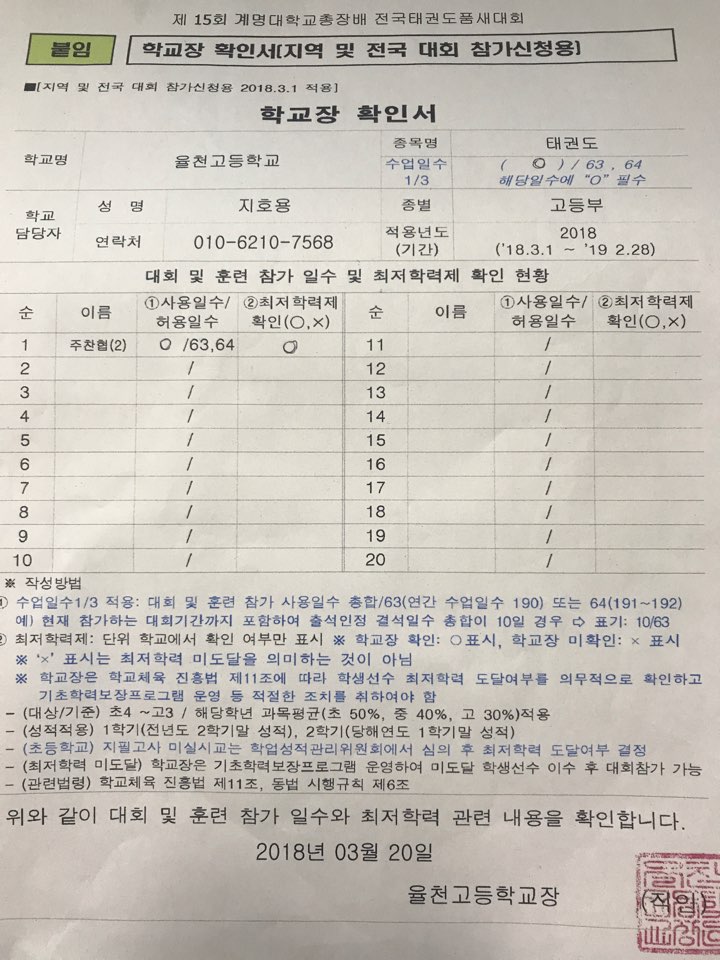 제 15회 계명대학교총장배 전국태권도품새대회
붙임 학교장 확인서(지역 및 전국 대회 참가신청용)
■[지역 및 전국 대회 참가신청용 2018.3.1 적용]
학교장 확인서
학교명 율천고등학교 종목명 태권도
수업일수 1/3 ( O ) / 63 , 64
해당일수에 "O" 필수
학교 담당자 성 명 지호용 종별 고등부
연락처 010-6210-7568 적용년도 (기간) 2018
('18.3.1 ~ '19 2.28)
대회 및 훈련 참가 일수 및 최저학력제 확인 현황
순 이름 ①사용일수/허용일수 ②최저학력제 확인(○,×) 순 이름 ①사용일수/허용일수 ②최저학력제 확인(○,×)
1 주찬협(2) O /63,64 O 11 /
2 / 12 /
3 / 13 /
4 / 14 /
5 / 15 /
6 / 16 /
7 / 17 /
8 / 18 /
9 / 19 /
10 / 20 /
※ 작성방법
① 수업일수1/3 적용: 대회 및 훈련 참가 사용일수 총합/63(연간 수업일수 190) 또는 64(191~192)
예) 현재 참가하는 대회기간까지 포함하여 출석인정 결석일수 총합이 10일 경우 ⇨ 표기: 10/63
② 최저학력제: 단위 학교에서 확인 여부만 표시 ※ 학교장 확인: ○표시, 학교장 미확인: × 표시
※ '×' 표시는 최저학력 미도달을 의미하는 것이 아님
※ 학교장은 학교체육 진흥법 제11조에 따라 학생선수 최저학력 도달여부를 의무적으로 확인하고
기초학력보장프로그램 운영 등 적절한 조치를 취하여야 함
- (대상/기준) 초4 ~고3 / 해당학년 과목평균(초 50%, 중 40%, 고 30%)적용
- (성적적용) 1학기(전년도 2학기말 성적), 2학기(당해연도 1학기말 성적)
- (초등학교) 지필고사 미실시교는 학업성적관리위원회에서 심의 후 최저학력 도달여부 결정
- (최저학력 미도달) 학교장은 기초학력보장프로그램 운영하여 미도달 학생선수 이수 후 대회참가 가능
- (관련법령) 학교체육 진흥법 제11조, 동법 시행규칙 제6조
위와 같이 대회 및 훈련 참가 일수와 최저학력 관련 내용을 확인합니다.
2018년 03월 20일
율천고등학교장 (직인)